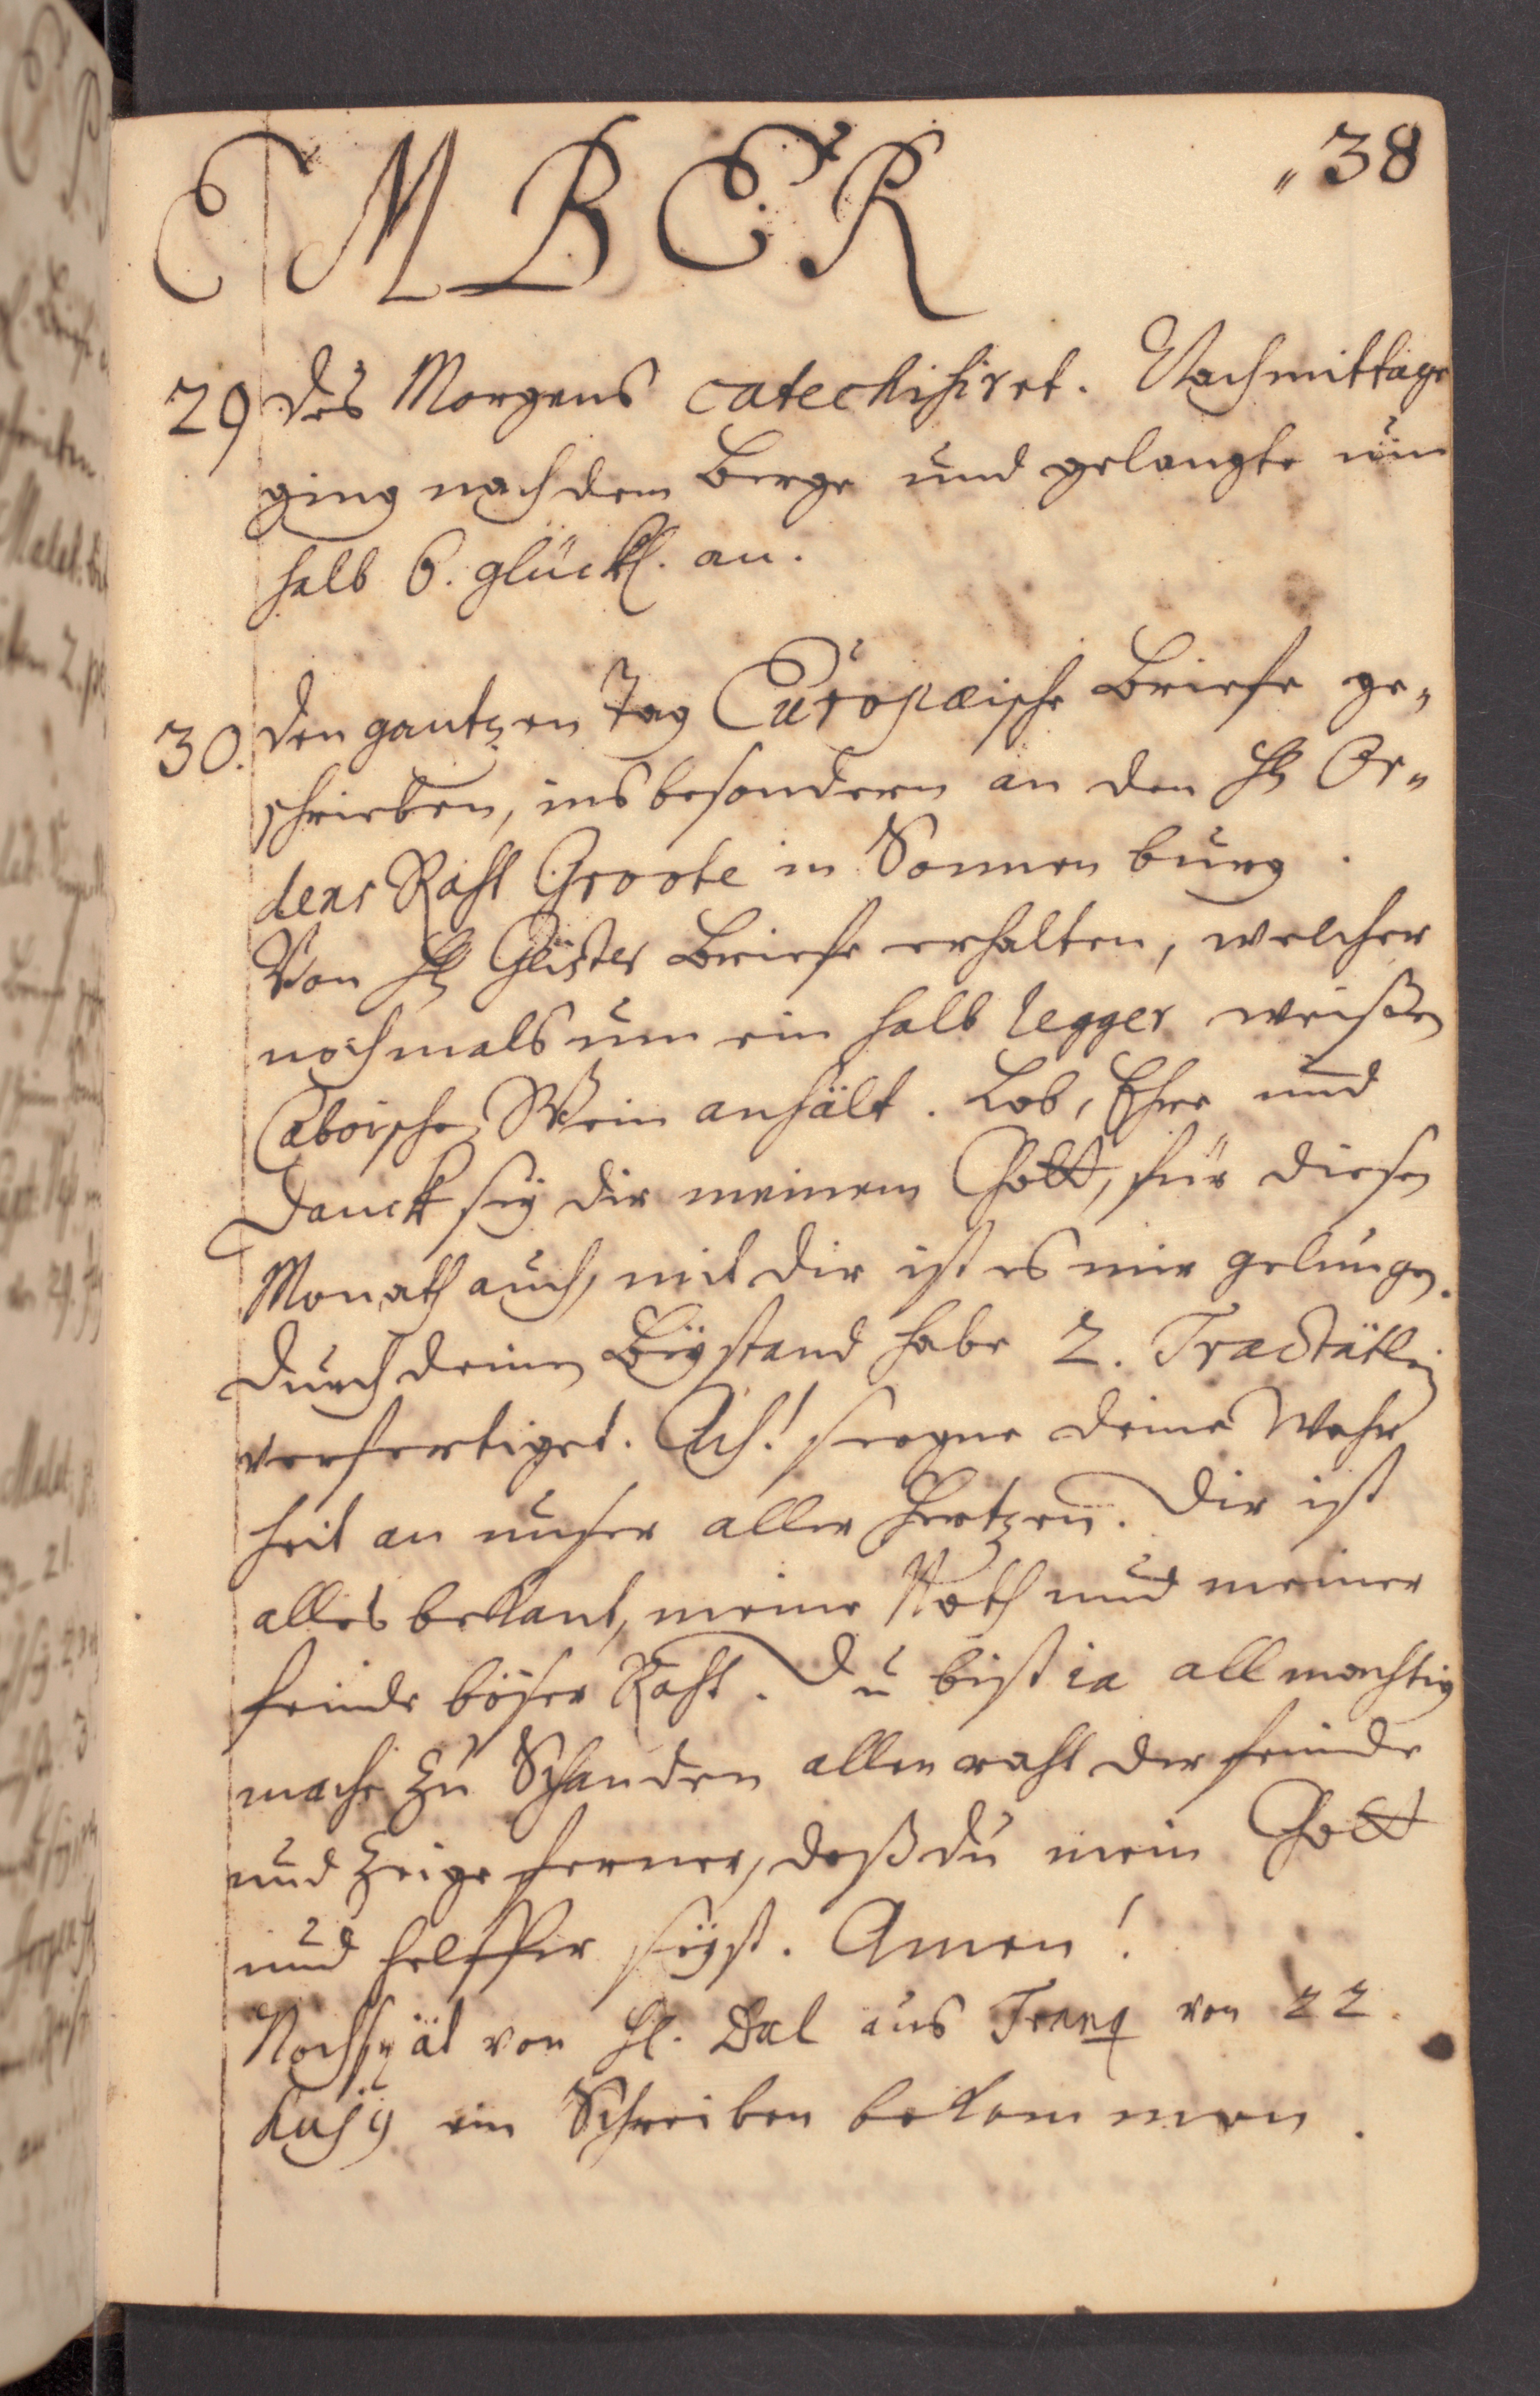 EMBER „38
29 des Morgens catechisiret. Nachmittage
ging nach dem Berge und gelangte um
halb 6. glückl. an.
30. den gantzen Tag Europæische Briefe ge„
schrieben, insbesondern an den H Or„
dens Raht Groote in Sonnenburg.
Von H Glüster Briefe erhalten, welcher
nochmals um ein halb legger weißen
Caboische Wein anhält. Lob, Ehre und
Danck sey dir meinem Gott, für diesen
Monath auch, mit dir ist es mir gelungen.
durch deinen Beystand habe 2. Tractätlein
verfertiget. Ach! seegne deine Wahr
heit an unser aller Hertzen. Dir ist
alles bekant, meine Noth und meiner
feinde böser Raht. Du bist ia allmächtig
mache zu Schanden allen raht der feinde
und zeige ferner, daß du mein Gott
und helffer seyst. Amen!
Noch spät von H. Dal aus Tranq von 22.
hujg ein Schreiben bekommen.